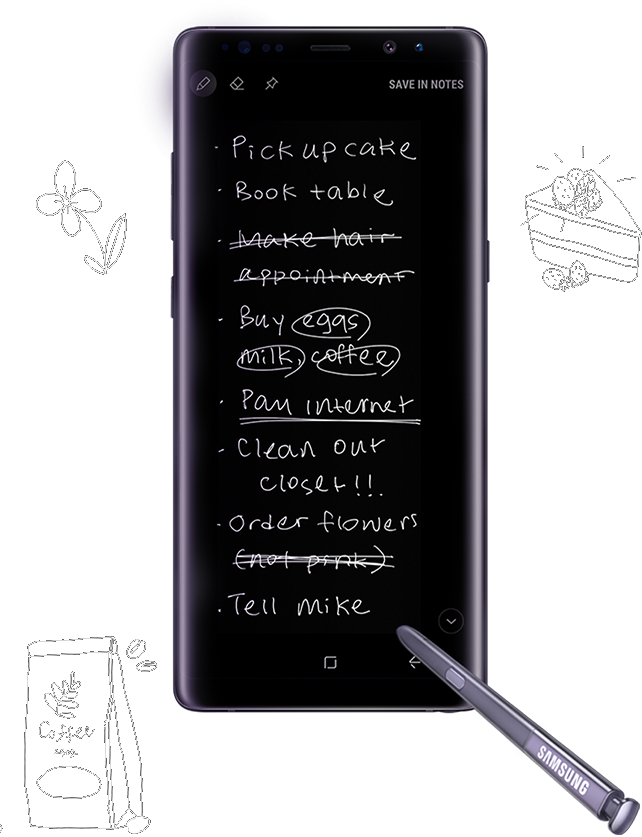 SAVE IN NOTES
· Pick up cake
· Book table
· Make hair
appointment
· Buy eggs
milk, coffee
· Pay internet
· Clean out
closet!!!
· Order flowers
(not pink)
· Tell mike
Coffee
SAMSUNG